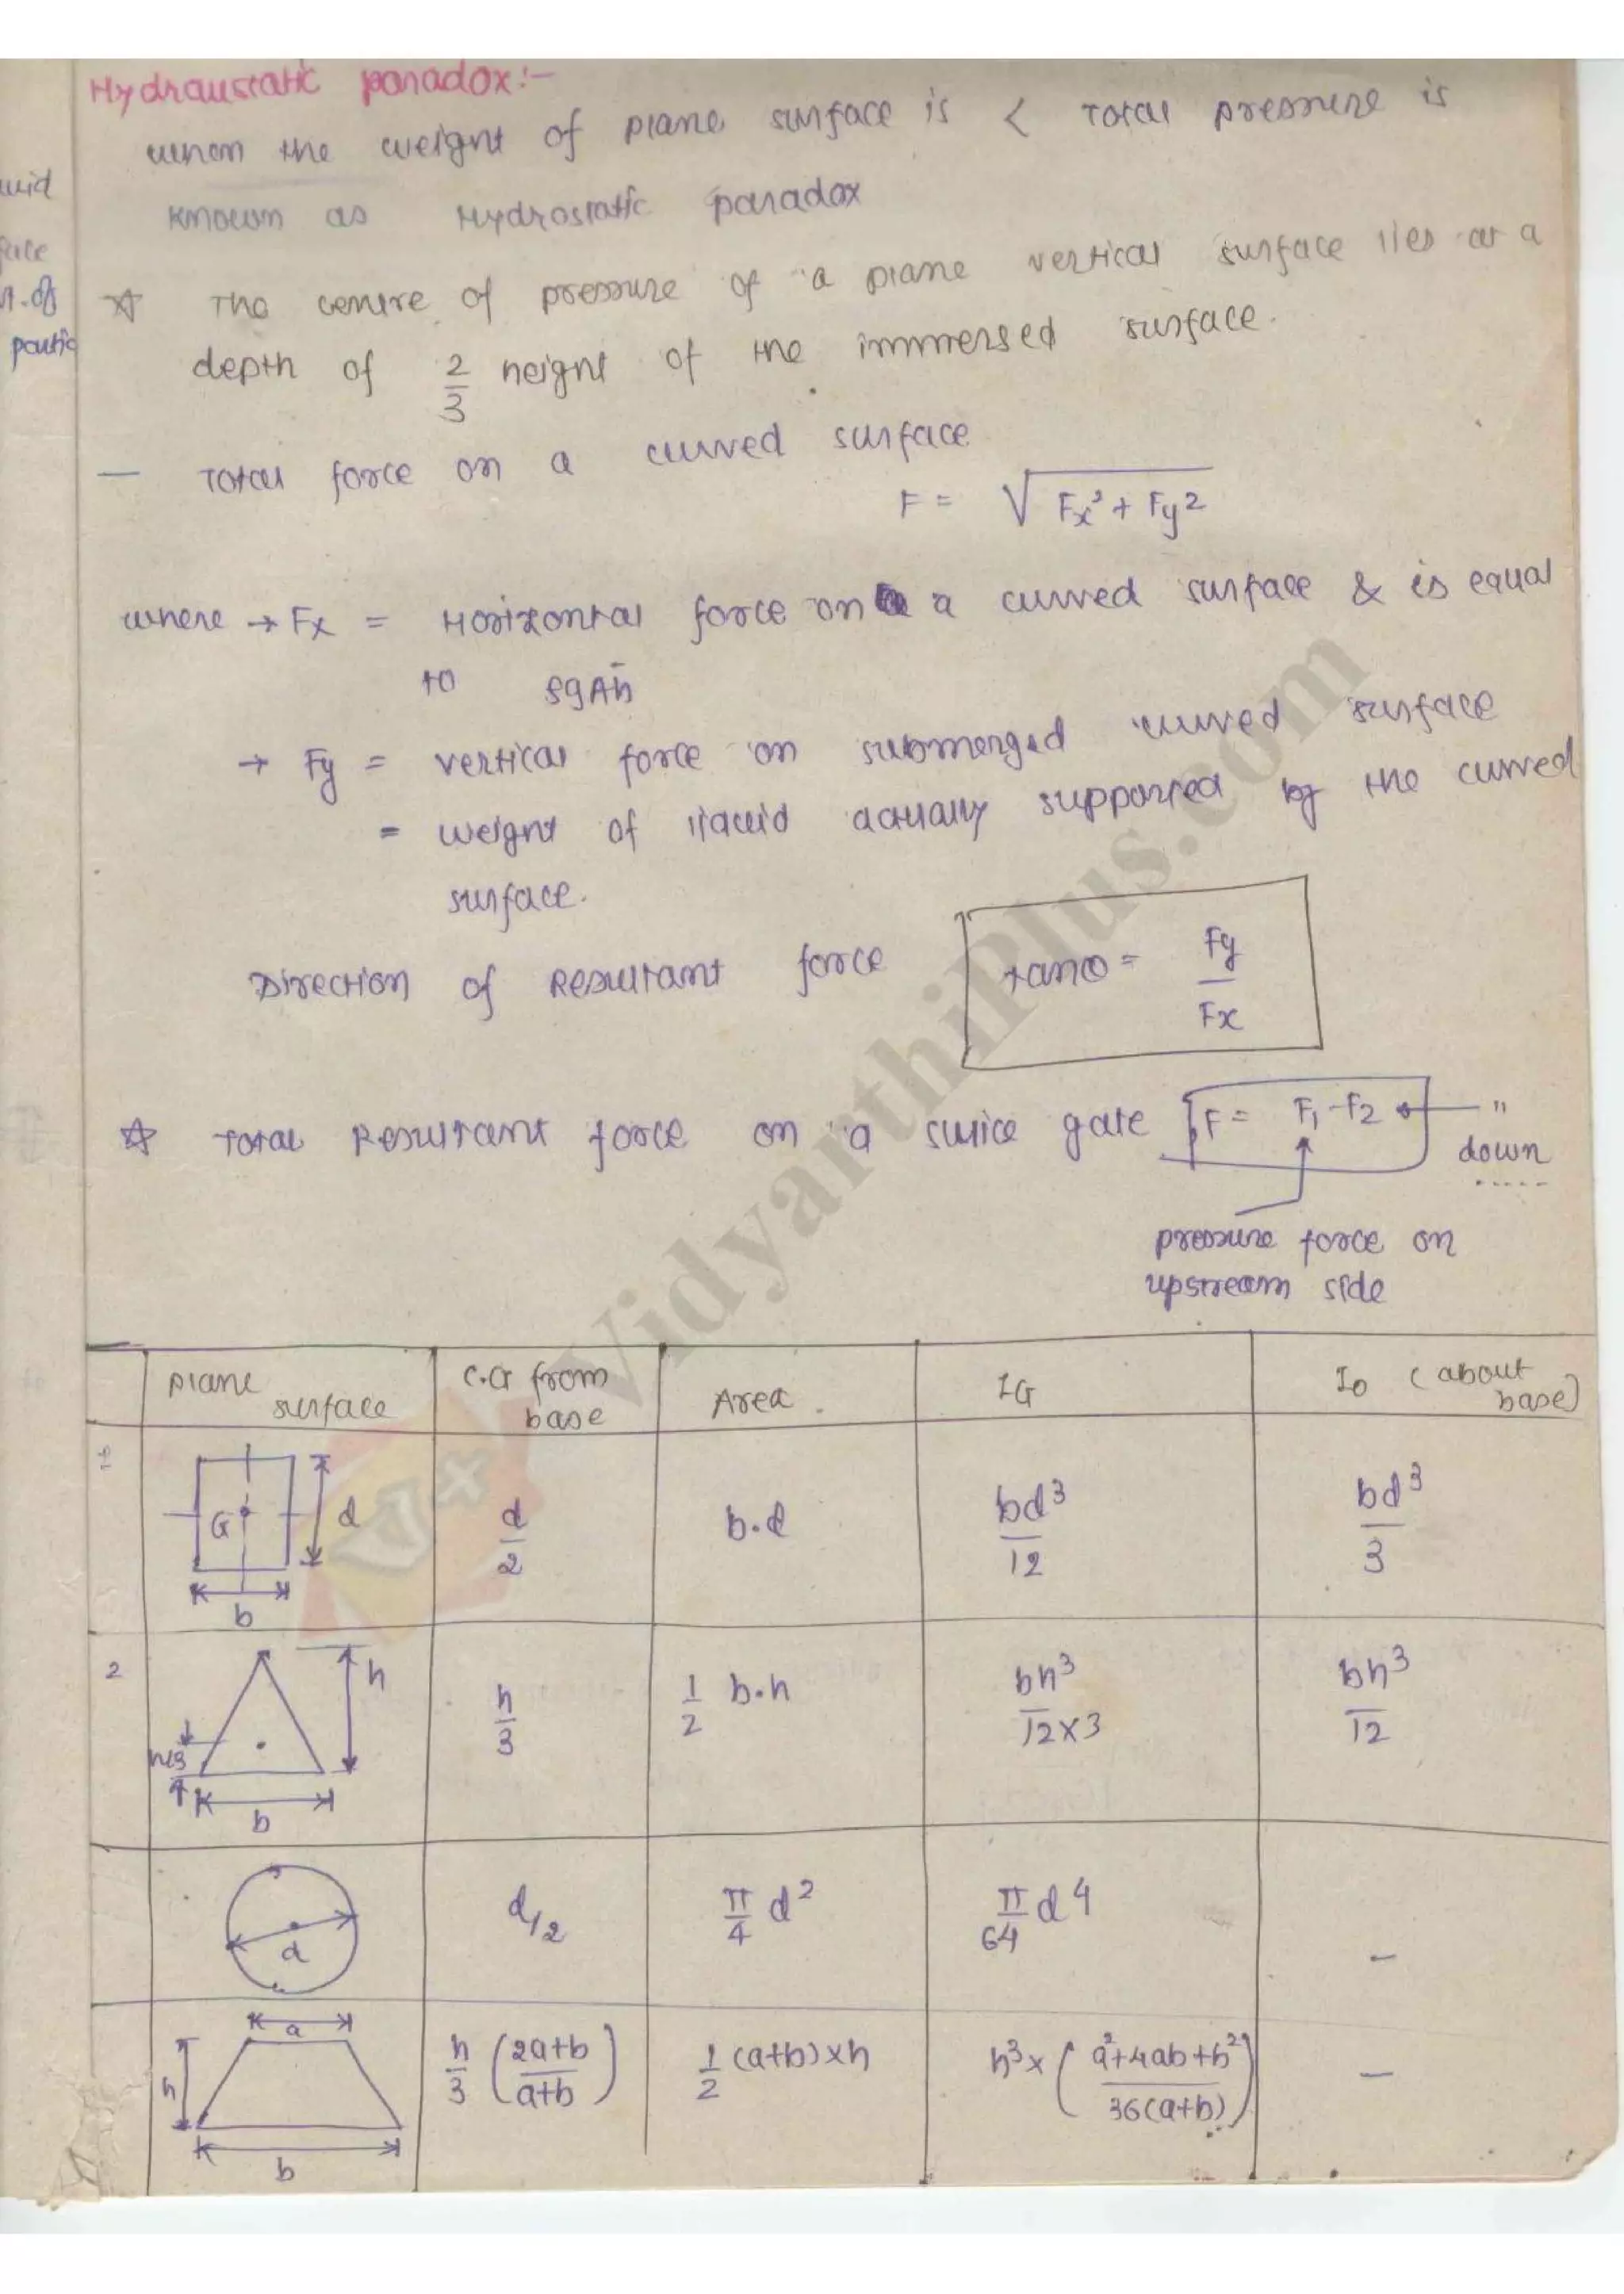 Hydraustatic paradox:-
when the weight of plane surface is < Total pressure is
known as Hydrostatic paradox
uid
face
n. of
partic
☆ The centre of pressure of a plane vertical surface lies at a
depth of 2/3 height of the immersed surface.
— Total force on a curved surface
F = √Fx² + Fy²
where → Fx = Horizontal force on a curved surface & is equal
to ρgAh̄
→ Fy = vertical force on submerged curved surface
= weight of liquid actually supported by the curved
surface.
Direction of Resultant force tanθ = Fy/Fx
☆ Total Resultant force on a sluice gate F = F1 - F2 ← "
down
.....
pressure force on
upstream side
plane surface C.G from base Area. IG Io (about base)
1 G d b d/2 b.d bd³/12 bd³/3
2 h h/3 b h/3 1/2 b.h bh³/12×3 bh³/12
d d/2 π/4 d² π/64 d⁴ –
a h b h/3 (2a+b/a+b) 1/2 (a+b)×h h³× (a²+4ab+b²/36(a+b)) –
VidyarthiPlus.com
V+